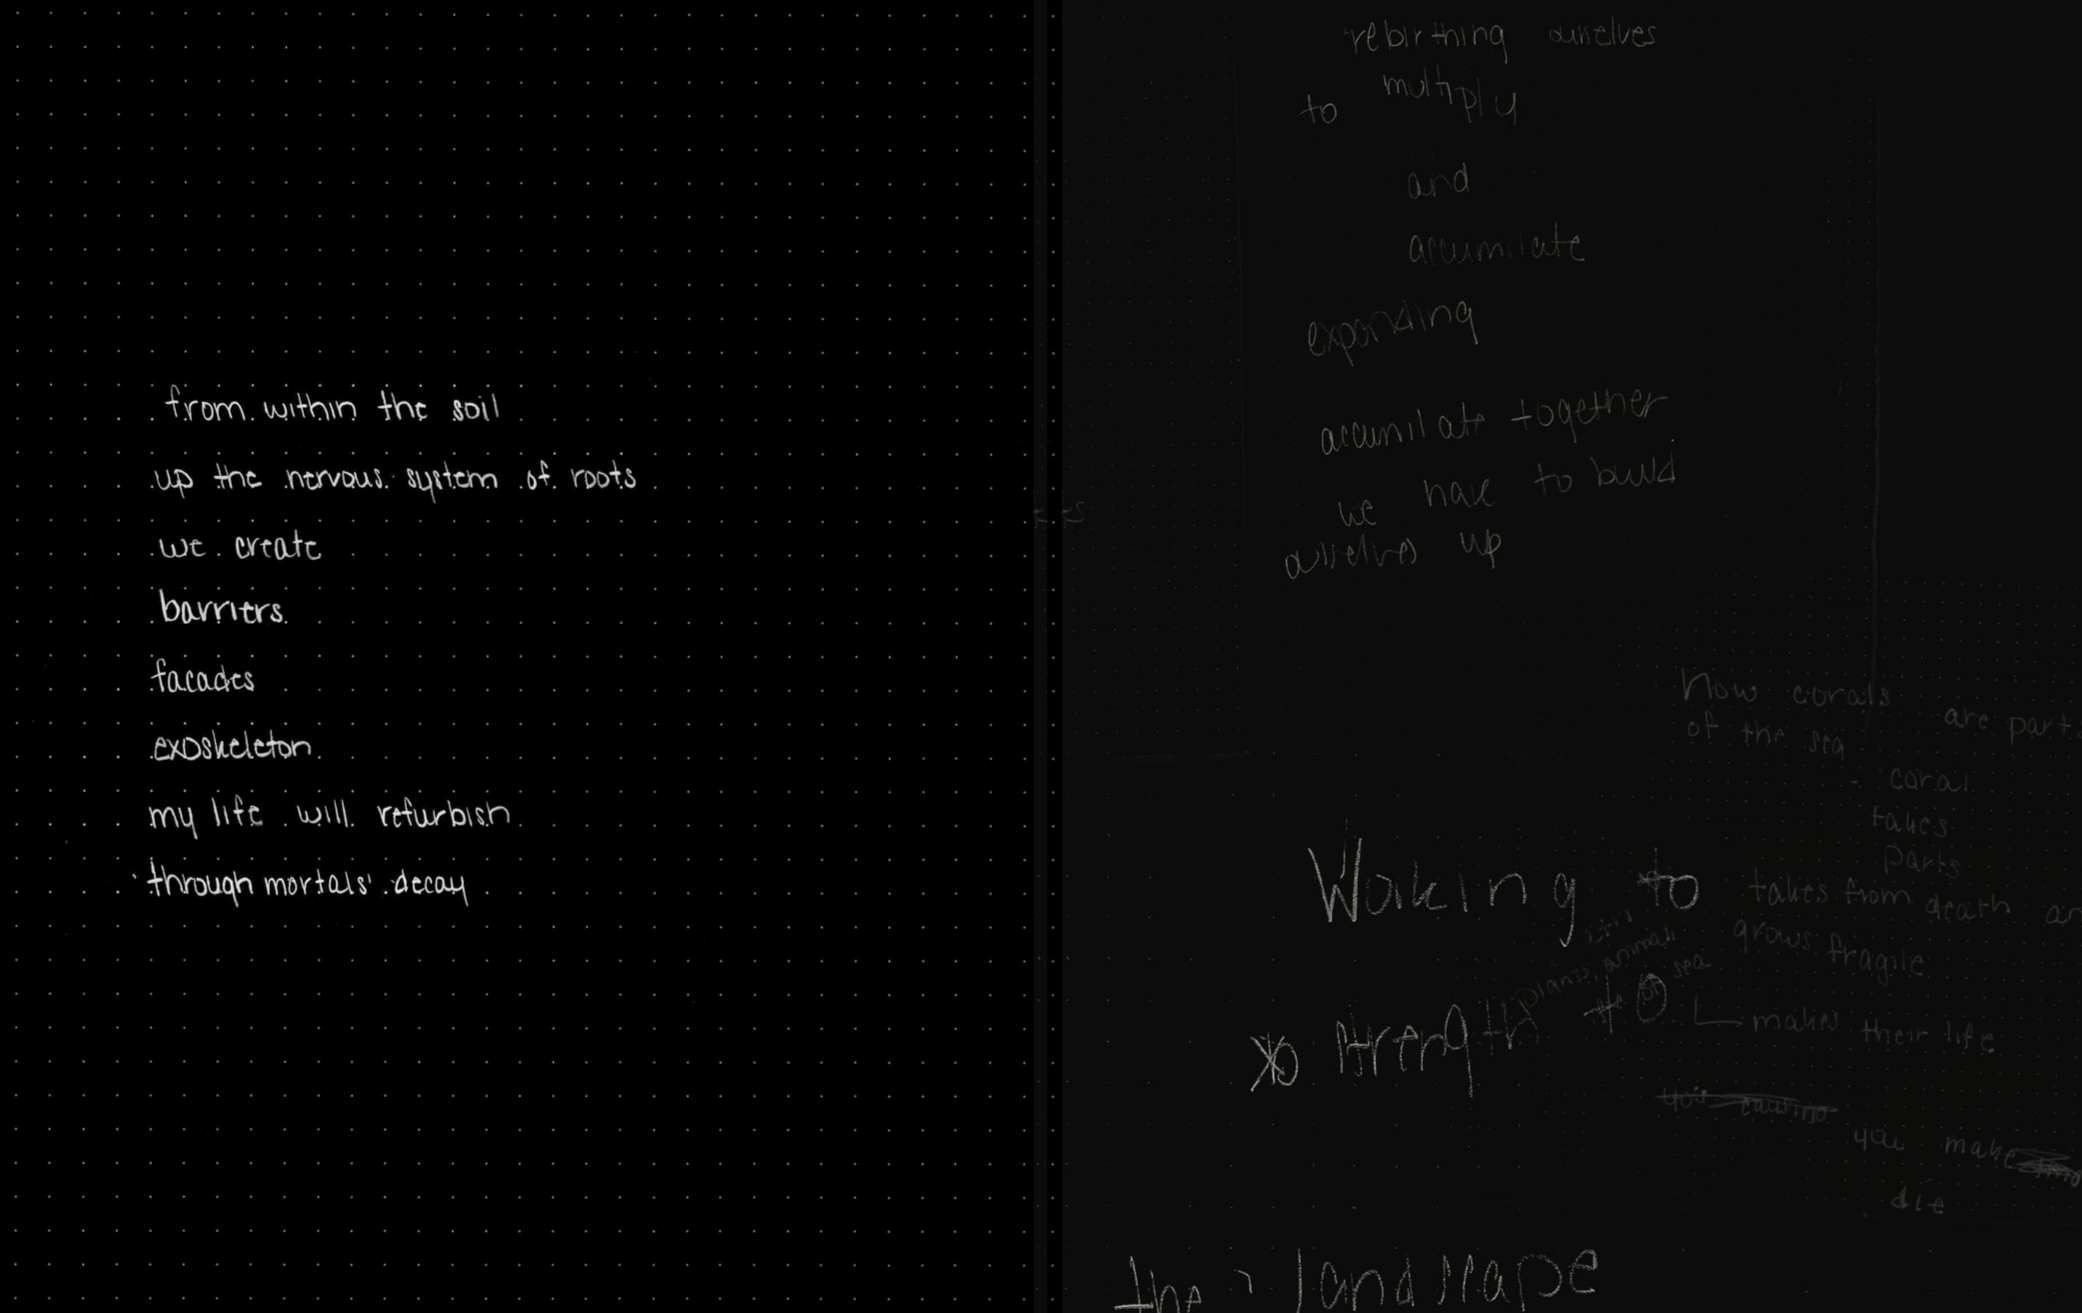 from within the soil
up the nervous system of roots
we create
barriers
facades
exoskeleton
my life will refurbish
through mortals' decay
rebirthing ourselves
to multiply
and
accumilate
expanding
accumilate together
we have to build
ourselves up
how corals are part
of the sea
- coral
takes
parts
takes from death
grows fragile
makes their life
plants, animals
sea
Working to
strength to
you make
die
the landscape